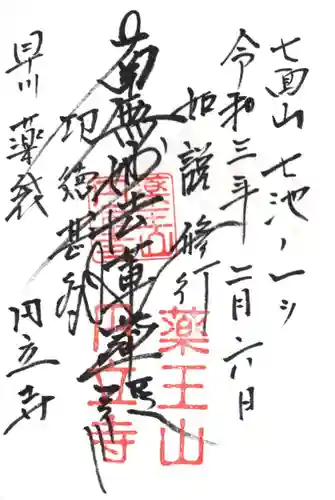 七面山 七池ノ一ツ
令和三年 二月六日
如説修行
南無妙法蓮華経
功徳甚多
早川 薬袋 円立寺
薬王山
円立寺